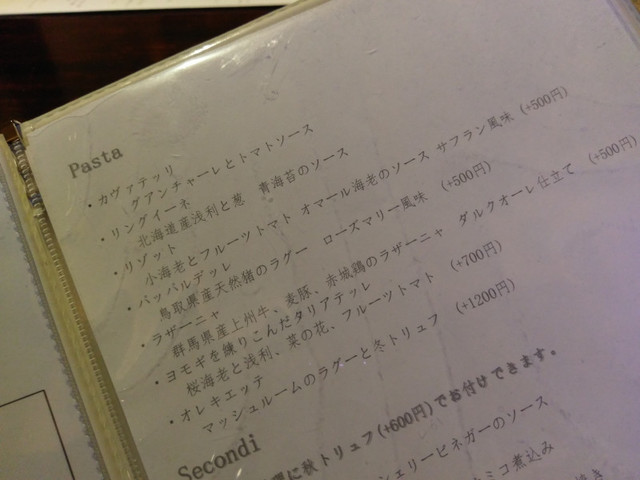 Pasta
・カヴァテッリ
グアンチャーレとトマトソース
・リングイーネ
北海道産浅利と葱 黄海苔のソース
・リゾット
小海老とフルーツトマト オマール海老のソース サフラン風味 (+500円)
・パッパルデッレ
鳥取県産天然猪のラグー ローズマリー風味 (+500円)
・ラザーニャ
群馬県産上州牛、麦豚、赤城鶏のラザーニャ ダルクオーレ仕立て (+500円)
・ヨモギを練りこんだタリアテッレ
桜海老と浅利、菜の花、フルーツトマト (+700円)
・オレキエッテ
マッシュルームのラグーと冬トリュフ (+1200円)
に秋トリュフ(+600円)でお付けできます。
Secondi
シェリービネガーのソース
ミコ煮込み